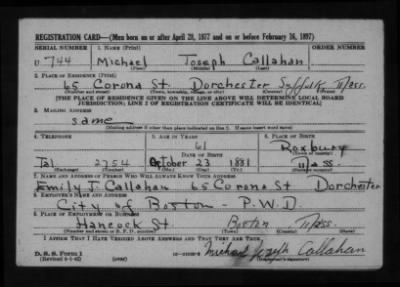 REGISTRATION CARD—(Men born on or after April 28, 1877 and on or before February 16, 1897)
SERIAL NUMBER 1. NAME (Print) ORDER NUMBER
U 744 Michael Joseph Callahan
(First) (Middle) (Last)
2. PLACE OF RESIDENCE (Print)
65 Corona St. Dorchester Suffolk Mass.
(Number and street) (Town, township, village, or city) (County) (State)
[THE PLACE OF RESIDENCE GIVEN ON THE LINE ABOVE WILL DETERMINE LOCAL BOARD
JURISDICTION; LINE 2 OF REGISTRATION CERTIFICATE WILL BE IDENTICAL]
3. MAILING ADDRESS
same
[Mailing address if other than place indicated on line 2. If same insert word same]
4. TELEPHONE 5. AGE IN YEARS 6. PLACE OF BIRTH
61 Roxbury
DATE OF BIRTH
Tal 2754 October 23 1881 Mass.
7. NAME AND ADDRESS OF PERSON WHO WILL ALWAYS KNOW YOUR ADDRESS
Emily J. Callahan 65 Corona St Dorchester
8. EMPLOYER'S NAME AND ADDRESS
City of Boston - P.W.D.
9. PLACE OF EMPLOYMENT OR BUSINESS
Hancock St. Boston Mass.
(Number and street or R. F. D. number) (Town) (County) (State)
I AFFIRM THAT I HAVE VERIFIED ABOVE ANSWERS AND THAT THEY ARE TRUE.
D. S. S. Form 1
(Revised 4-1-42) (over) Michael Joseph Callahan